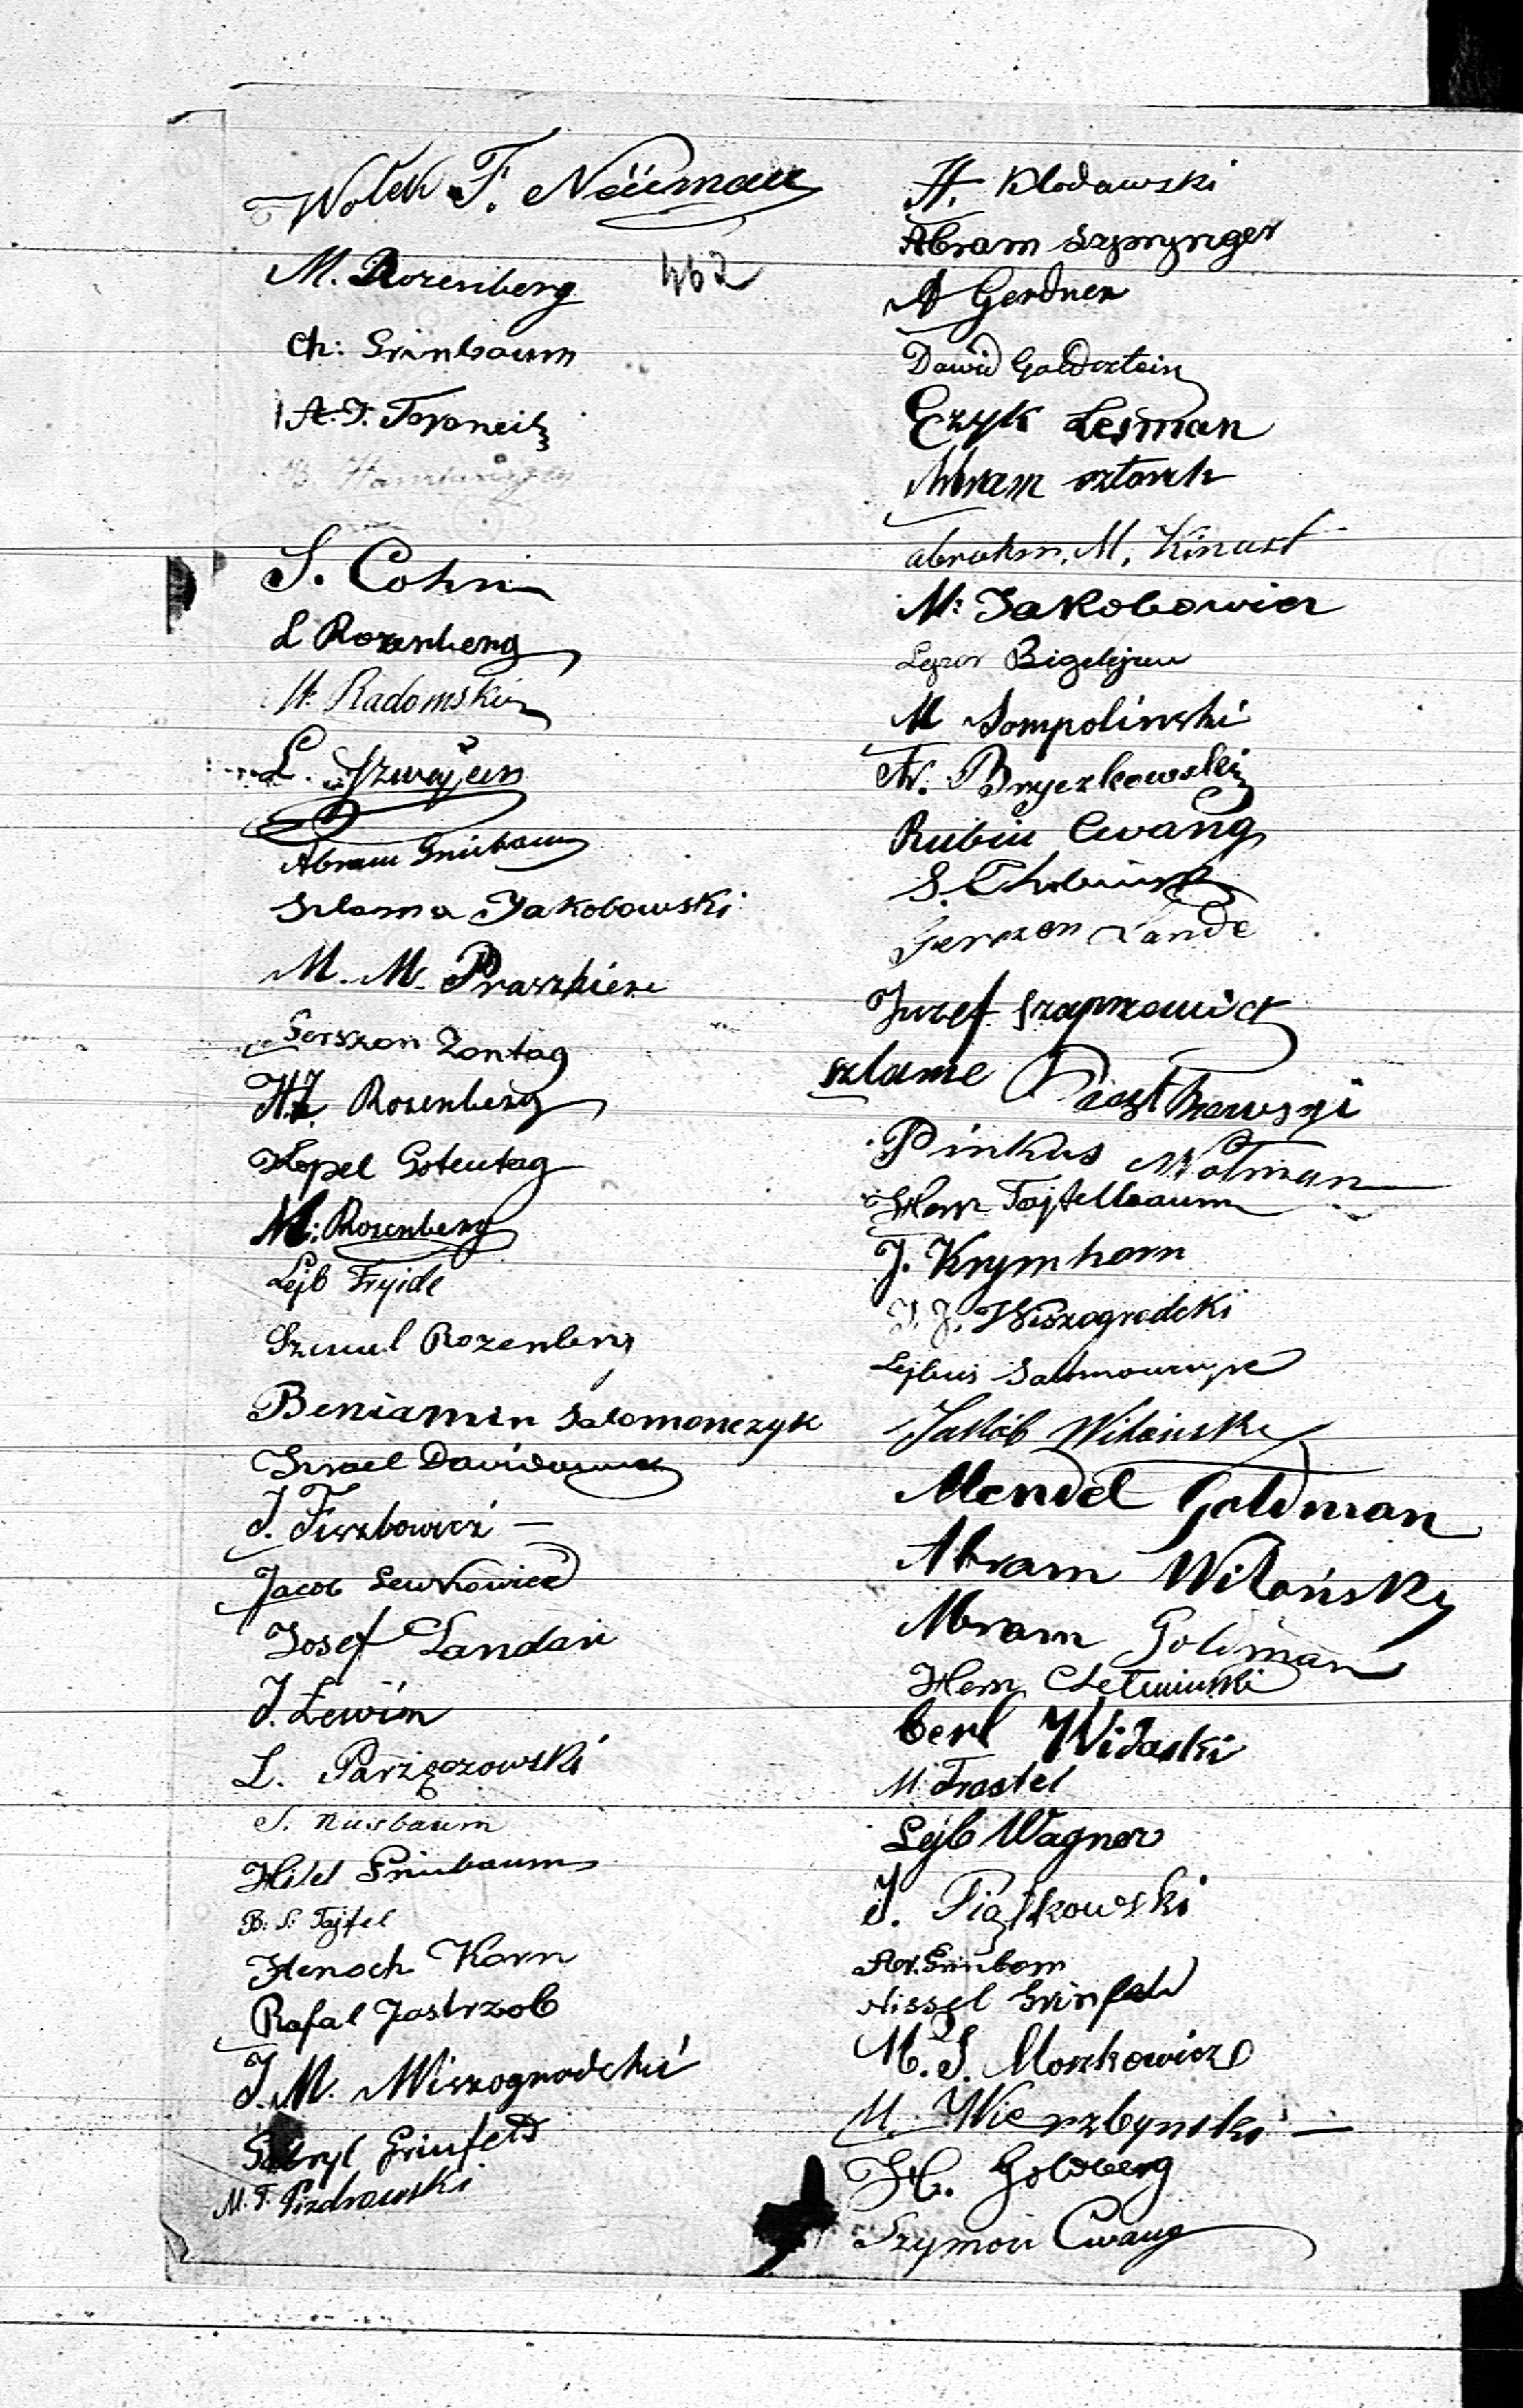 Wolek F. Neüman
M. Rozenberg 462
Ch: Grinbaum
A. I. Toroncik
S. Cohn
L Rozenberg
M. Radomski
L. Szwajcer
Abram Grinbaum
Szlama Jakobowski
M. M. Praszkier
Gerszon Zontag
H.J. Rozenberg
Kopel Gotentag
M: Rozenberg
Lejb Fryjde
Szmul Rozenberg
Beniamin Salomonczyk
Israel Dawidowicz
J. Fiszbowicz –
Jacob Lewkowicz
Josef Landau
J. Lewin
L. Parzęczowski
S. Nusbaum
Hilel Grinbaum
B: S: Tajfel
Henoch Korn
Rafal Jastrzob
J. M. Wiszogrodzki
Gabryl Grinfeld
M. F. Pizdrowski
H. Klodawski
Abram Szprynger
A Gerdner
Dawid Goldsztein
Ezyk Lesman
Abram Sztorch
Abrahm. M. Kinast
M: Jakobowicz
Lejzor Bigelejzen
M Sompolinski
A. Bryczkowski
Rubin Cwang
S.
Gerszon Lande
Juzef Szajnrowicz
Szlame
Pinkus Wolman
Hersz Tajtelbaum
J. Krymhorn
I. J. Wiszogrodzki
Lejbus Salmowczyk
Jakób Wilonski
Mendel Goldman
Abram Wilońsky
Abram Goldman
Hersz Chelminski
Berl Widaski
M. Frostel
Lejb Wagner
J. Piątkowski
Abr. Grinbom
Nissel Grinfeld
M. S. Moszkowicz
M. Wierzbynski –
H. Goldberg
Szymon Cwang